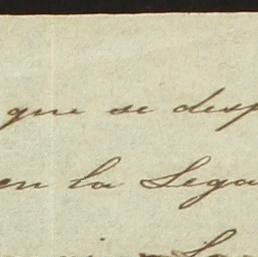 que se desp
en la Lega